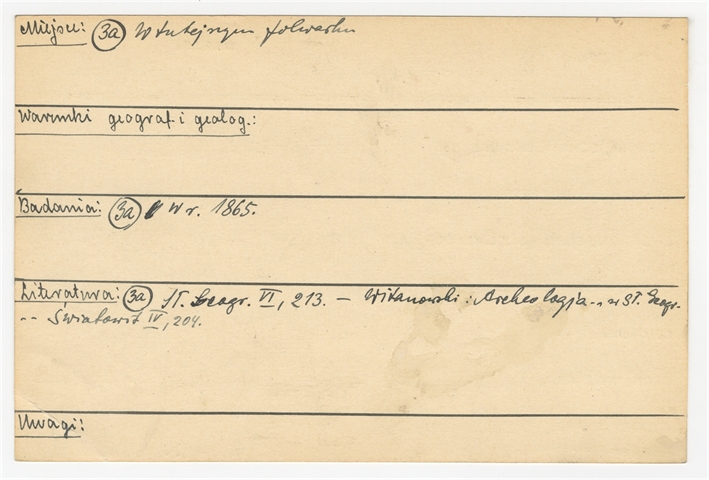 Miejsce: 3a W tutejszym folwarku
Warunki geograf. i geolog.:
Badania: 3a W r. 1865.
Literatura: 3a Sł. Geogr. VI, 213. – Witanowski: Archeologja... w Sł. Geogr.
-- Światowit IV, 204.
Uwagi: